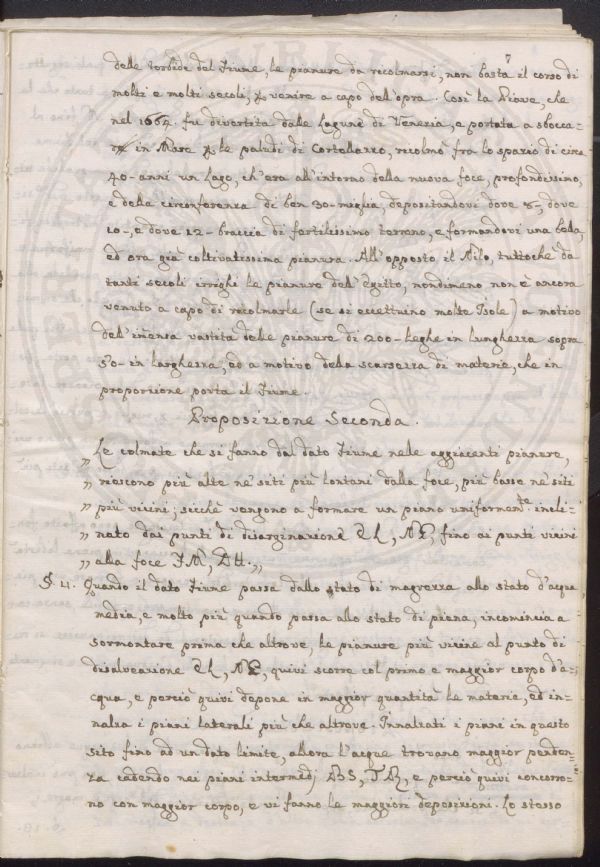 7
delle torbide del Fiume, le pianure da ricolmarsi, non basta il corso di
molti e molti secoli, p venire a capo dell'opra. Così la Piave, che
nel 1664. fu divertita dalle Lagune di Venezia, e portata a sbocca-
re in Mare p le paludi di Cortellazzo, ricolmò fra lo spazio di circa
40- anni un Lago, ch'era all'intorno della nuova foce, profondissimo,
e della circonferenza di ben 30- miglia, depositandovi dove 8-, dove
10-, e dove 12- braccia di fertilissimo terreno, e formandovi una bella,
ed ora già coltivatissima pianura. All'opposto il Nilo, tuttochè da
tanti secoli irrighi le pianure dell'Egitto, nondimeno non è ancora
venuto a capo di ricolmarle (se si eccettuino molte Isole) a motivo
dell'imensa vastità delle pianure di 200- leghe in lunghezza sopra
50- in larghezza, ed a motivo della scarsezza di materie, che in
proporzione porta il Fiume.
Proposizione Seconda.
„ Le colmate che si fanno dal dato Fiume nele aggiacenti pianure,
„ riescono più alte ne' siti più lontani dalla foce, più basse ne' siti
„ più vicini; sicchè vengono a formare un piano uniformem.te incli-
„ nato dai punti di disarginazione fino ai punti vicini
„ alla foce
§. 4. Quando il dato Fiume passa dallo stato di magrezza allo stato d'acqua
media, e molto più quando passa allo stato di piena, incomincia a
sormontare prima che altrove, le pianure più vicine al punto di
disalveazione quivi scorre col primo e maggior corpo d'a-
cqua, e perciò quivi depone in maggior quantità le materie, ed in-
nalza i piani laterali più che altrove. Innalzati i piani in questo
sito fino ad un dato limite, allora l'acque trovano maggior penden-
za cadendo nei piani intermedj e perciò quivi concorro-
no con maggior corpo, e vi fanno le maggiori deposizioni. Lo stesso